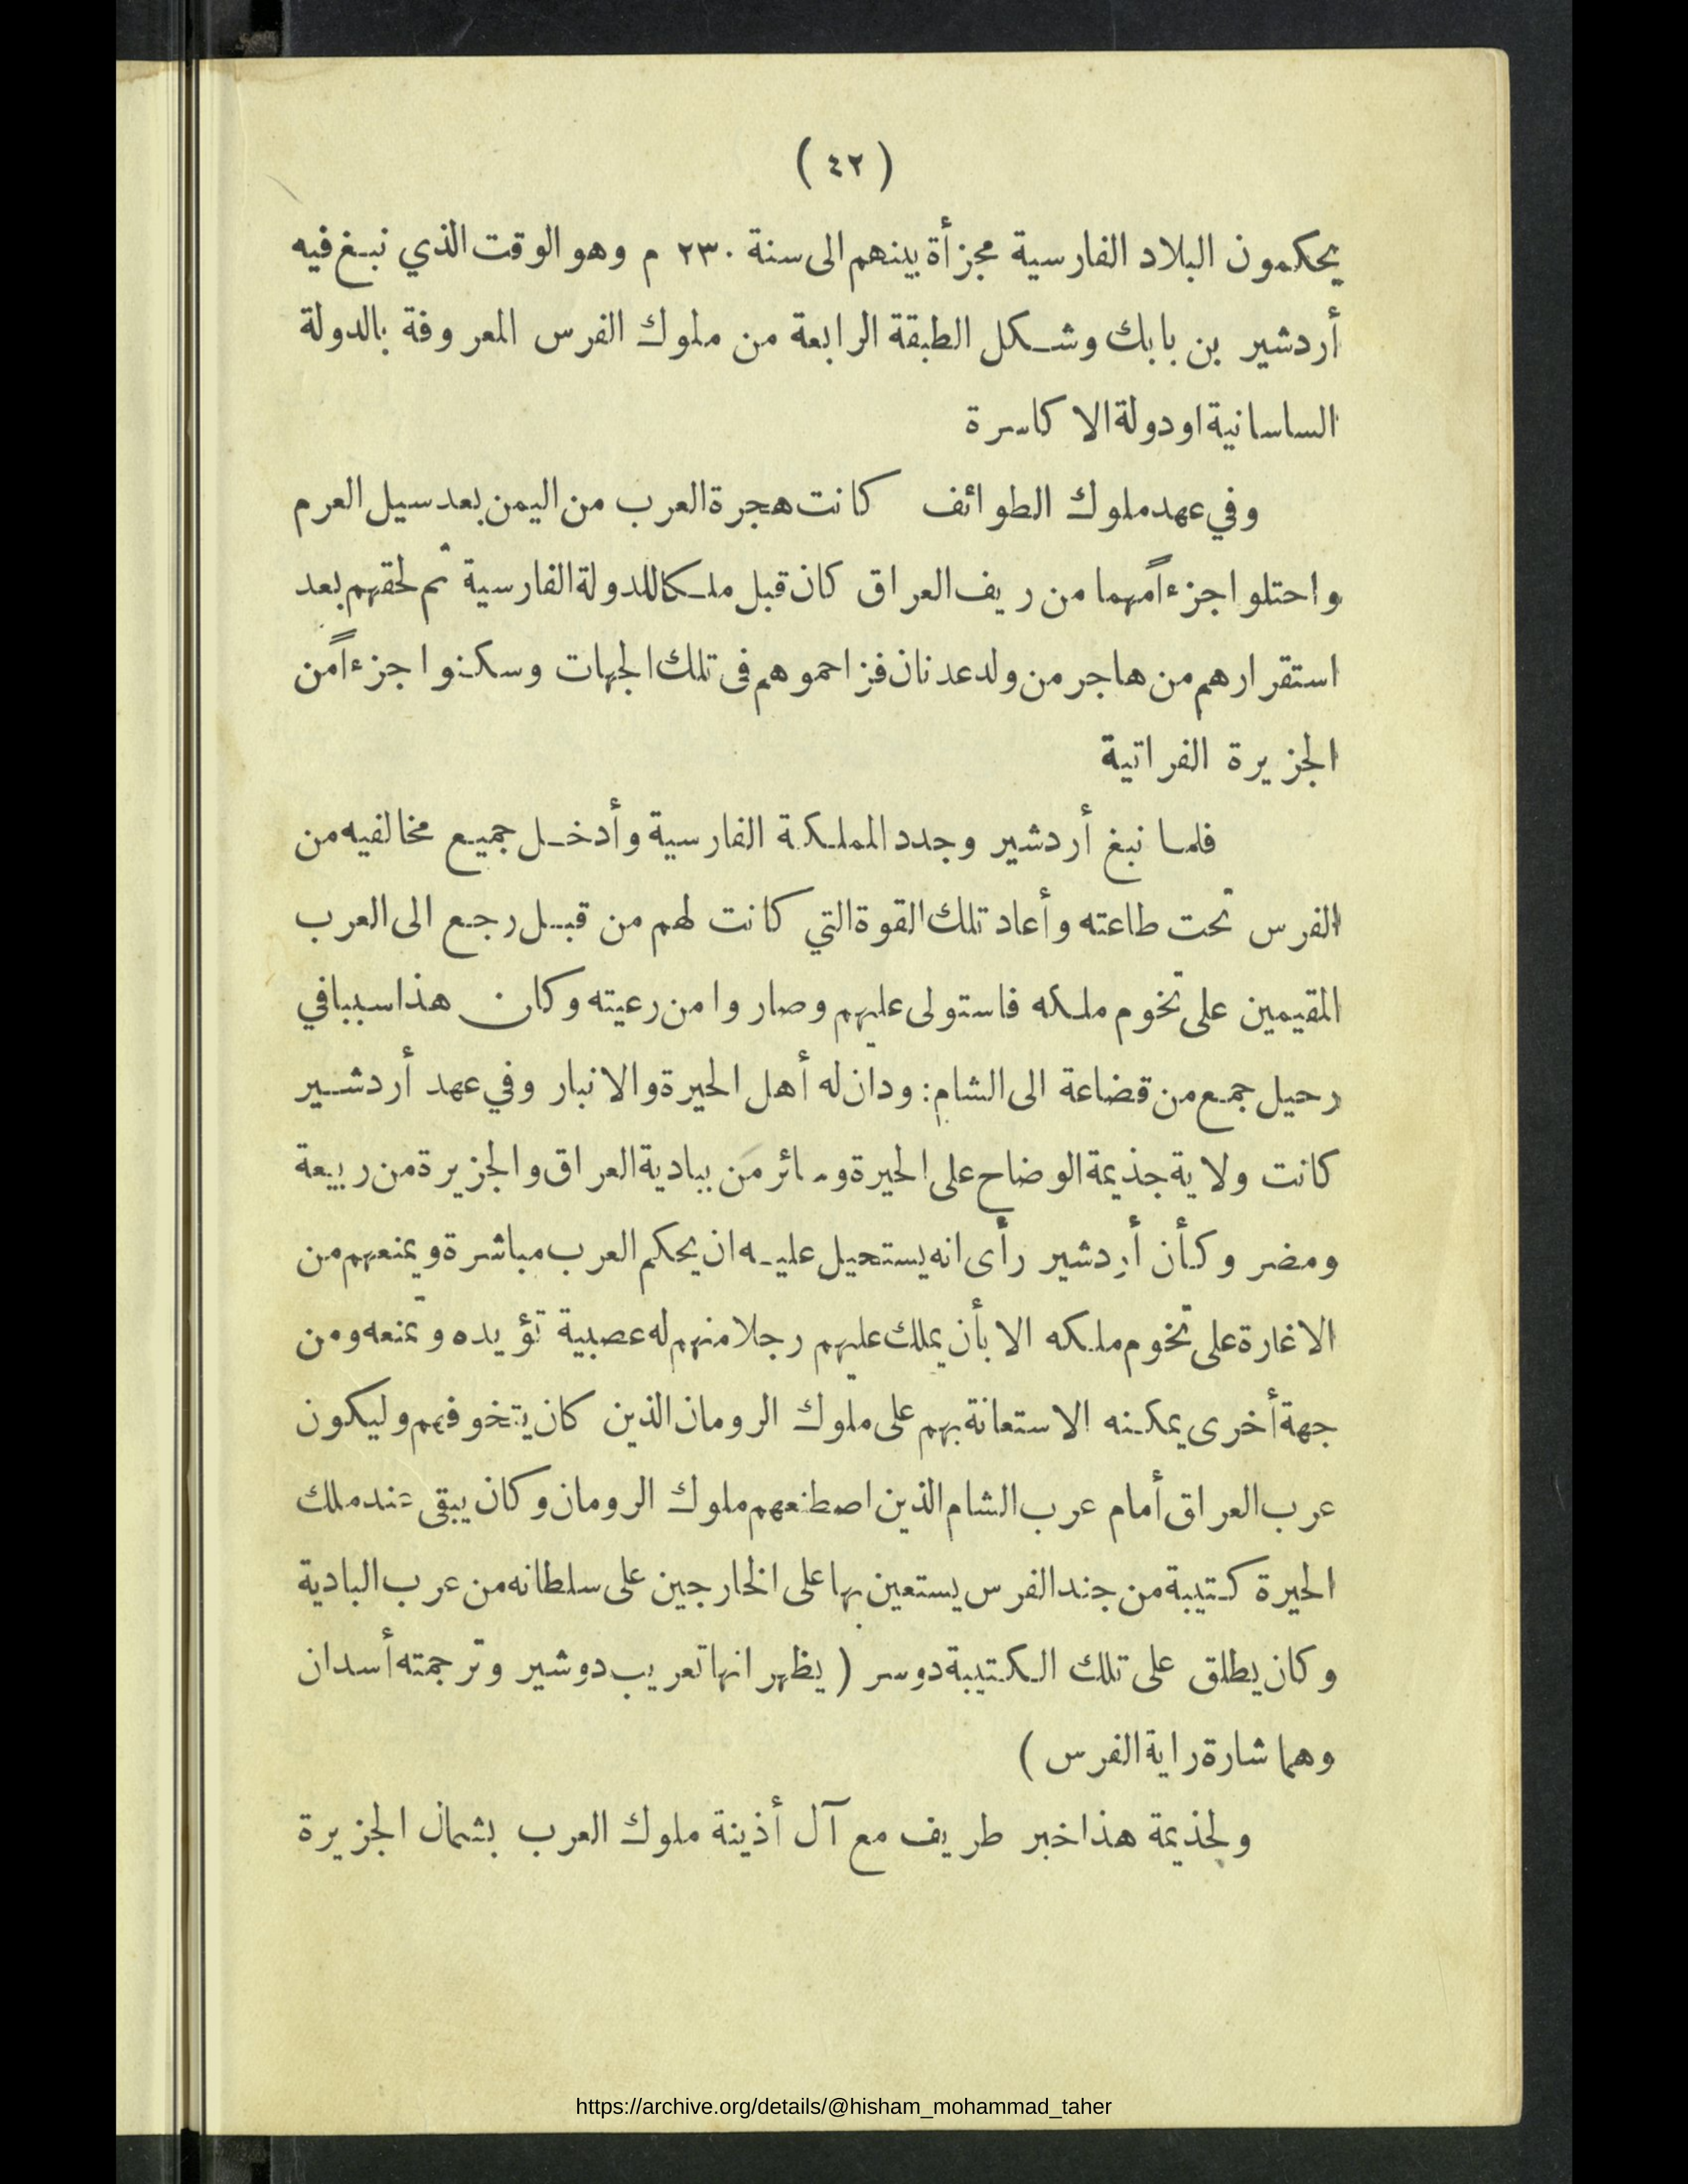 ( ٤٢ )
يحكمون البلاد الفارسية مجزأة بينهم الى سنة ٢٣٠ م وهو الوقت الذي نبغ فيه
أردشير بن بابك وشكل الطبقة الرابعة من ملوك الفرس المعروفة بالدولة
الساسانية او دولة الاكاسرة
وفي عهد ملوك الطوائف كانت هجرة العرب من اليمن بعد سيل العرم
واحتلوا جزءاً مهما من ريف العراق كان قبل ملكا للدولة الفارسية ثم لحقهم بعد
استقرارهم من هاجر من ولد عدنان فزاحموهم فى تلك الجهات وسكنوا جزءاً من
الجزيرة الفراتية
فلما نبغ أردشير وجدد المملكة الفارسية وأدخل جميع مخالفيه من
الفرس تحت طاعته وأعاد تلك القوة التي كانت لهم من قبل رجع الى العرب
المقيمين على تخوم ملكه فاستولى عليهم وصاروا من رعيته وكان هذا سببا في
رحيل جمع من قضاعة الى الشام: ودان له أهل الحيرة والانبار وفي عهد أردشير
كانت ولاية جذيمة الوضاح على الحيرة وسائر من ببادية العراق والجزيرة من ربيعة
ومضر وكأن أردشير رأى انه يستحيل عليه ان يحكم العرب مباشرة ويمنعهم من
الاغارة على تخوم ملكه الا بأن يملك عليهم رجلا منهم له عصبية تؤيده وتمنعه ومن
جهة أخرى يمكنه الاستعانة بهم على ملوك الرومان الذين كان يتخوفهم وليكون
عرب العراق أمام عرب الشام الذين اصطنعهم ملوك الرومان وكان يبقى عند ملك
الحيرة كتيبة من جند الفرس يستعين بها على الخارجين على سلطانه من عرب البادية
وكان يطلق على تلك الكتيبة دوسر ( يظهر انها تعريب دوشير وترجمته أسدان
وهما شارة راية الفرس )
ولجذيمة هذا خبر طريف مع آل أذينة ملوك العرب بشمال الجزيرة
https://archive.org/details/@hisham_mohammad_taher